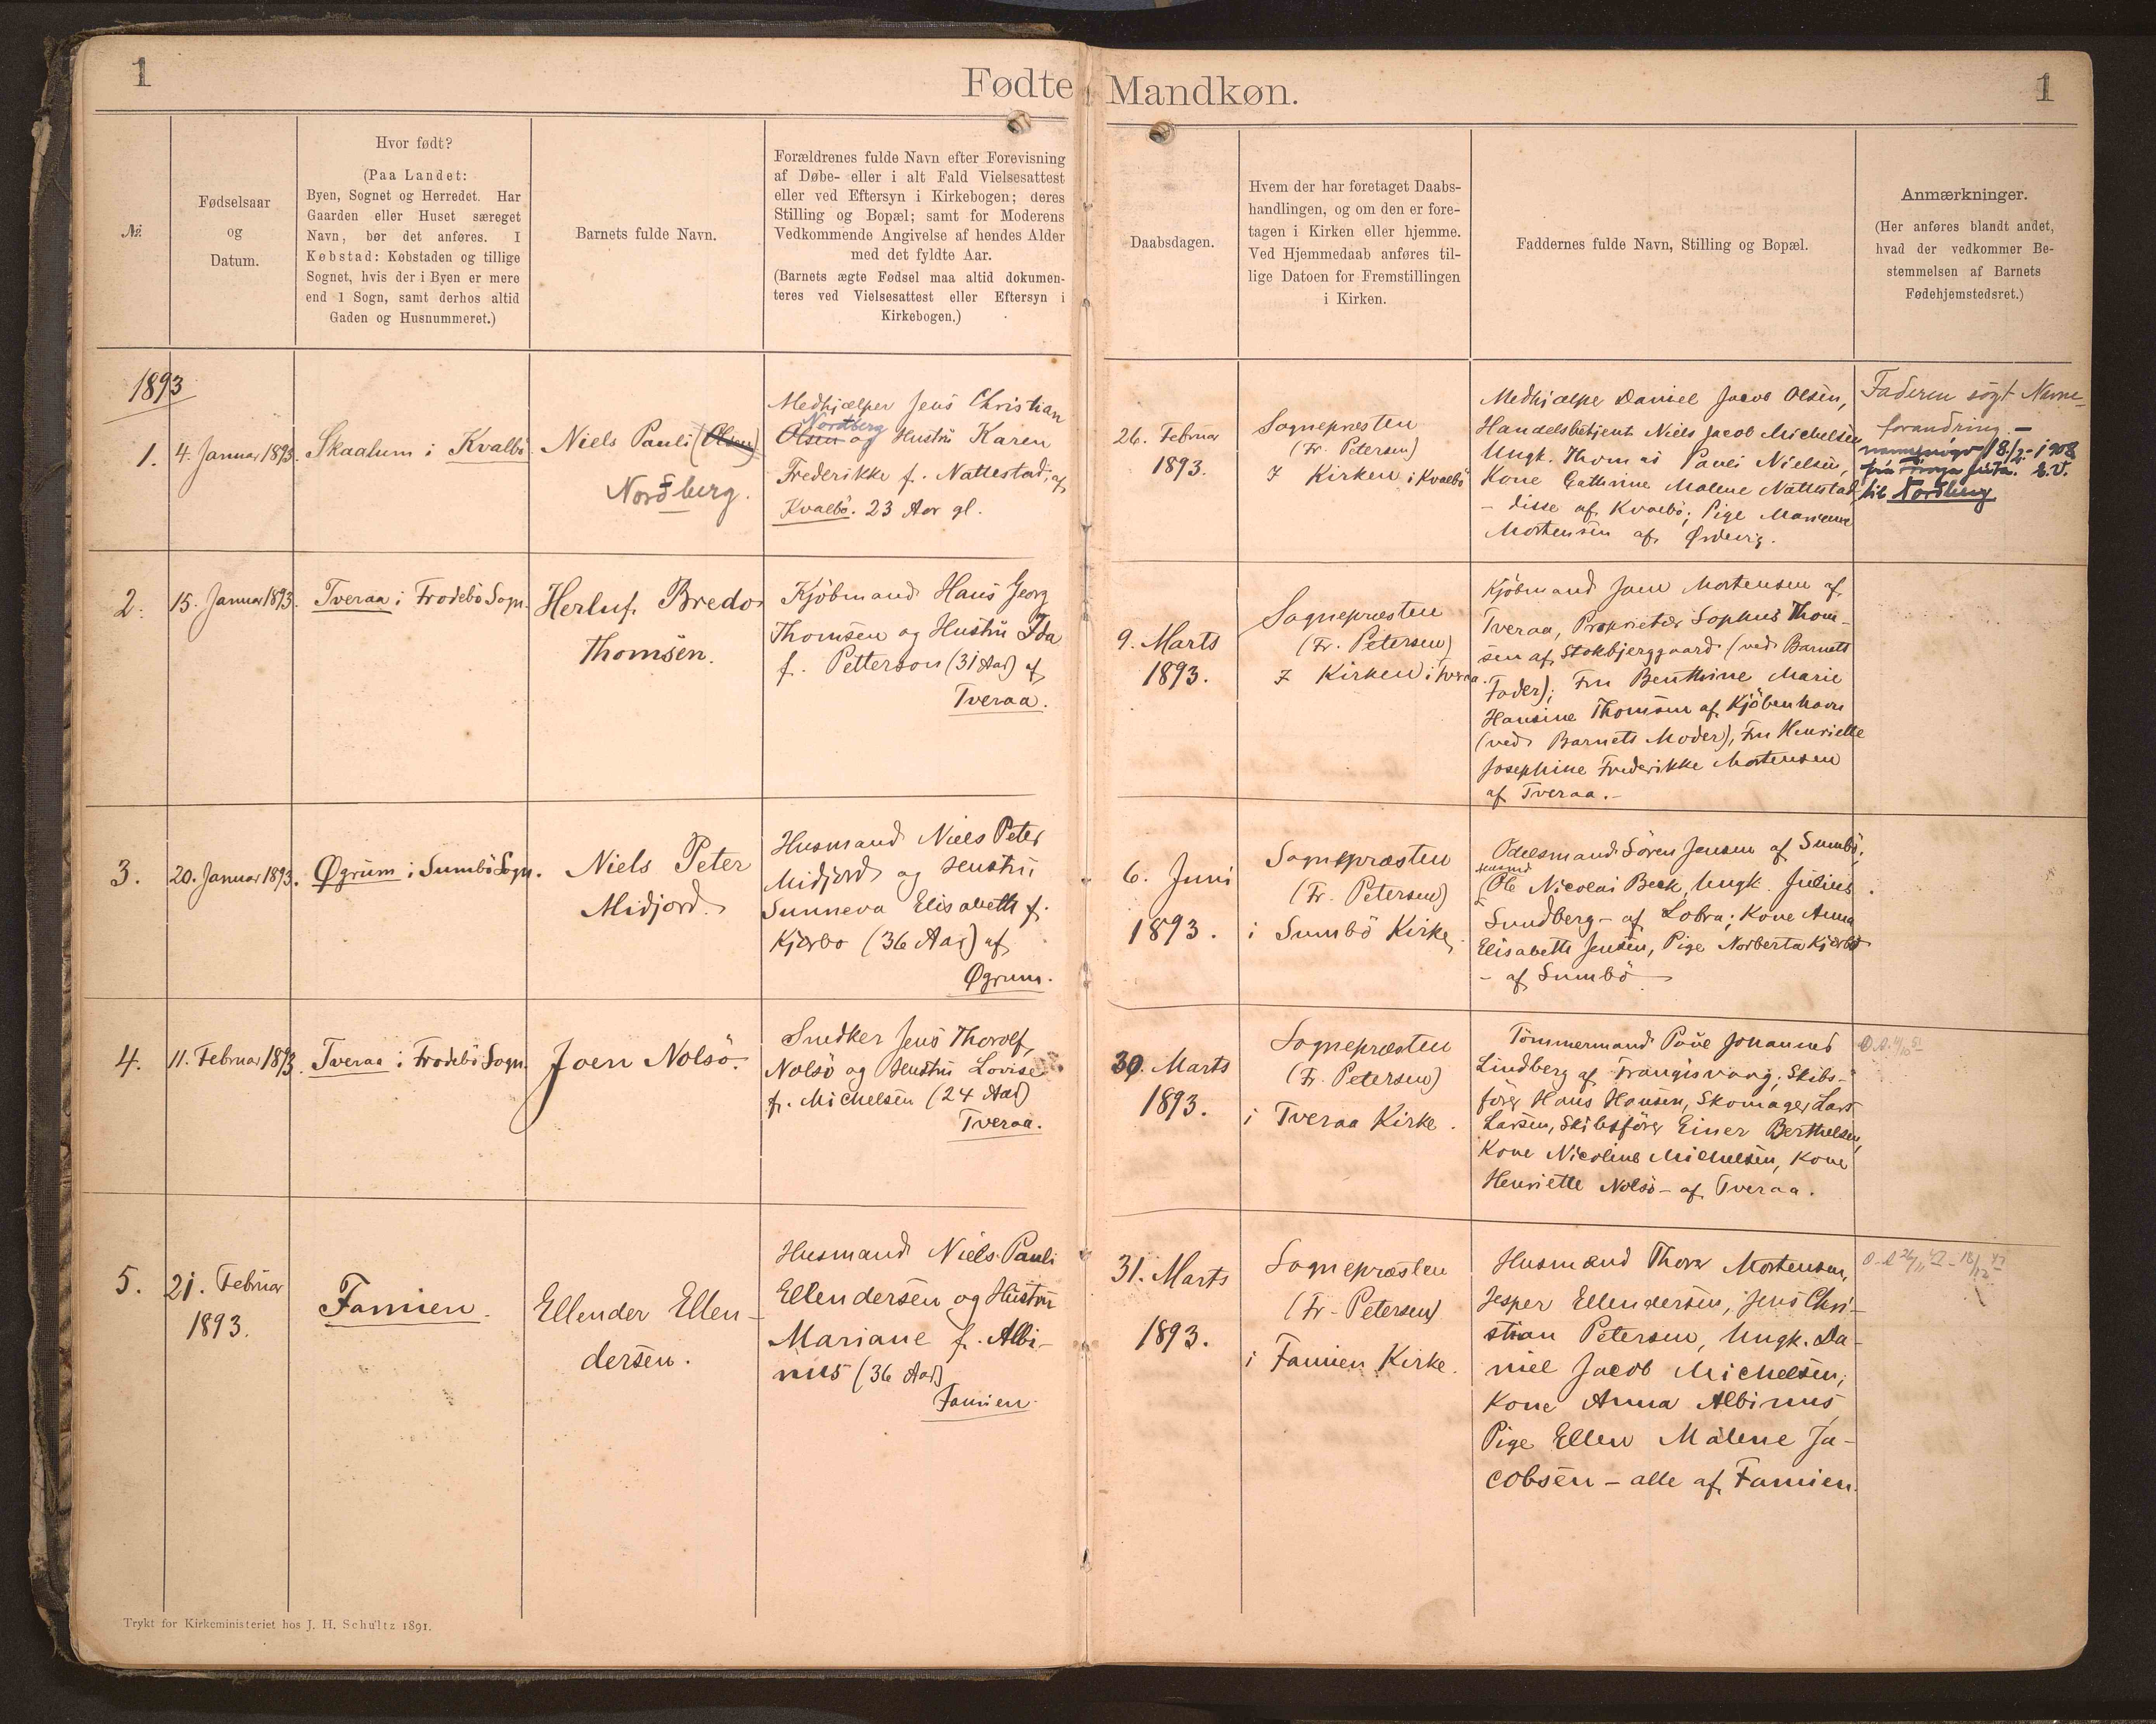 1
Fødte
Mandkøn.
1
№.
Fødselsaar
og
Datum.
Hvor født?
(Paa Landet:
Byen, Sognet og Herredet. Har
Gaarden eller Huset særeget
Navn, bør det anføres. I
Købstad: Købstaden og tillige
Sognet, hvis der i Byen er mere
end 1 Sogn, samt derhos altid
Gaden og Husnummeret.)
Barnets fulde Navn.
Forældrenes fulde Navn efter Forevisning
af Døbe- eller i alt Fald Vielsesattest
eller ved Eftersyn i Kirkebogen; deres
Stilling og Bopæl; samt for Moderens
Vedkommende Angivelse af hendes Alder
med det fyldte Aar.
(Barnets ægte Fødsel maa altid dokumen-
teres ved Vielsesattest eller Eftersyn i
Kirkebogen.)
Daabsdagen.
Hvem der har foretaget Daabs-
handlingen, og om den er fore-
tagen i Kirken eller hjemme.
Ved Hjemmedaab anføres til-
lige Datoen for Fremstillingen
i Kirken.
Faddernes fulde Navn, Stilling og Bopæl.
Anmærkninger.
(Her anføres blandt andet,
hvad der vedkommer Be-
stemmelsen af Barnets
Fødehjemstedsret.)
1893
1.
4. Januar 1893.
Skaalum i Kvalbö.
Niels Pauli (Olsen)
Nordberg.
Medhjælper Jens Christian
Nordberg
Olsen og Hustru Karen
Frederikke f. Nattestad; af
Kvalbö. 23 Aar gl.
26. Februar
1893.
Sognepræsten
(Fr. Petersen)
I Kirken i Kvalbö
Medhjælper Daniel Jacob Olsen,
Handelsbetjent Niels Jacob Michelsen
Ungk. Thomas Pauli Nielsen,
Kone Cathrine Malene Nattestad,
- disse af Kvalbö; Pige
Mortensen af Ørdevig.
Faderen sögt Navne-
forandring. -
18/2-1908
til Nordberg
2.
15. Januar 1893.
Tveraa i Frodebö Sogn.
Herluf Bredo
Thomsen.
Kjöbmand Hans Georg
Thomsen og Hustru Ida
f. Petterson (31 Aar) af
Tveraa.
9. Marts
1893.
Sognepræsten
(Fr. Petersen)
I Kirken i Tveraa.
Kjöbmand Jens Mortensen af
Tveraa, Proprietær Sophus Thom-
sen af Stokbjerggaard (ved Barnets
Fader); Fru Benthine Marie
Hansine Thomsen af Kjöbenhavn
(ved Barnets Moder), Fru Henriette
Josephine Frederikke Mortensen
af Tveraa. -
3.
20. Januar 1893.
Øgrum i Sumbö Sogn.
Niels Peter
Midjord.
Husmand Niels Peter
Midjord og Hustru
Sunneva Elisabeth f.
Kjærbo (36 Aar) af
Øgrum.
6. Juni
1893.
Sognepræsten
(Fr. Petersen)
i Sumbö Kirke.
Odelsmand Sören Jensen af Sumbö,
Ole Nicolai Beck, Ungk. Julius
Sundberg - af Lobra; Kone Anna
Elisabeth Jensen, Pige Norberta Kjærbo
- af Sumbö.
4.
11. Februar 1893.
Tveraa i Frodebö Sogn.
Joen Nolsö.
Snedker Jens Thorolf
Nolsö og Hustru Lovise
f. Michelsen (24 Aar)
Tveraa.
30. Marts
1893.
Sognepræsten
(Fr. Petersen)
i Tveraa Kirke.
Tömmermand Pove Johannes
Lindberg af Trangisvaag; Skibs-
förer Hans Hansen, Skomager Lars
Larsen, Skibsförer Einer Berthelsen,
Kone Nicoline Michelsen, Kone
Henriette Nolsö - af Tveraa.
5.
21. Februar
1893.
Famien.
Ellender Ellen-
dersen.
Husmand Niels Pauli
Ellendersen og Hustru
Mariane f. Albi-
nus (36 Aar)
Famien.
31. Marts
1893.
Sognepræsten
(Fr. Petersen)
i Famien Kirke.
Husmænd Thor Mortensen,
Jesper Ellendersen, Jens Chri-
stian Petersen, Ungk. Da-
niel Jacob Michelsen;
Kone Anna Albinus,
Pige Ellen Malene Ja-
cobsen - alle af Famien.
Trykt for Kirkeministeriet hos J. H. Schultz 1891.